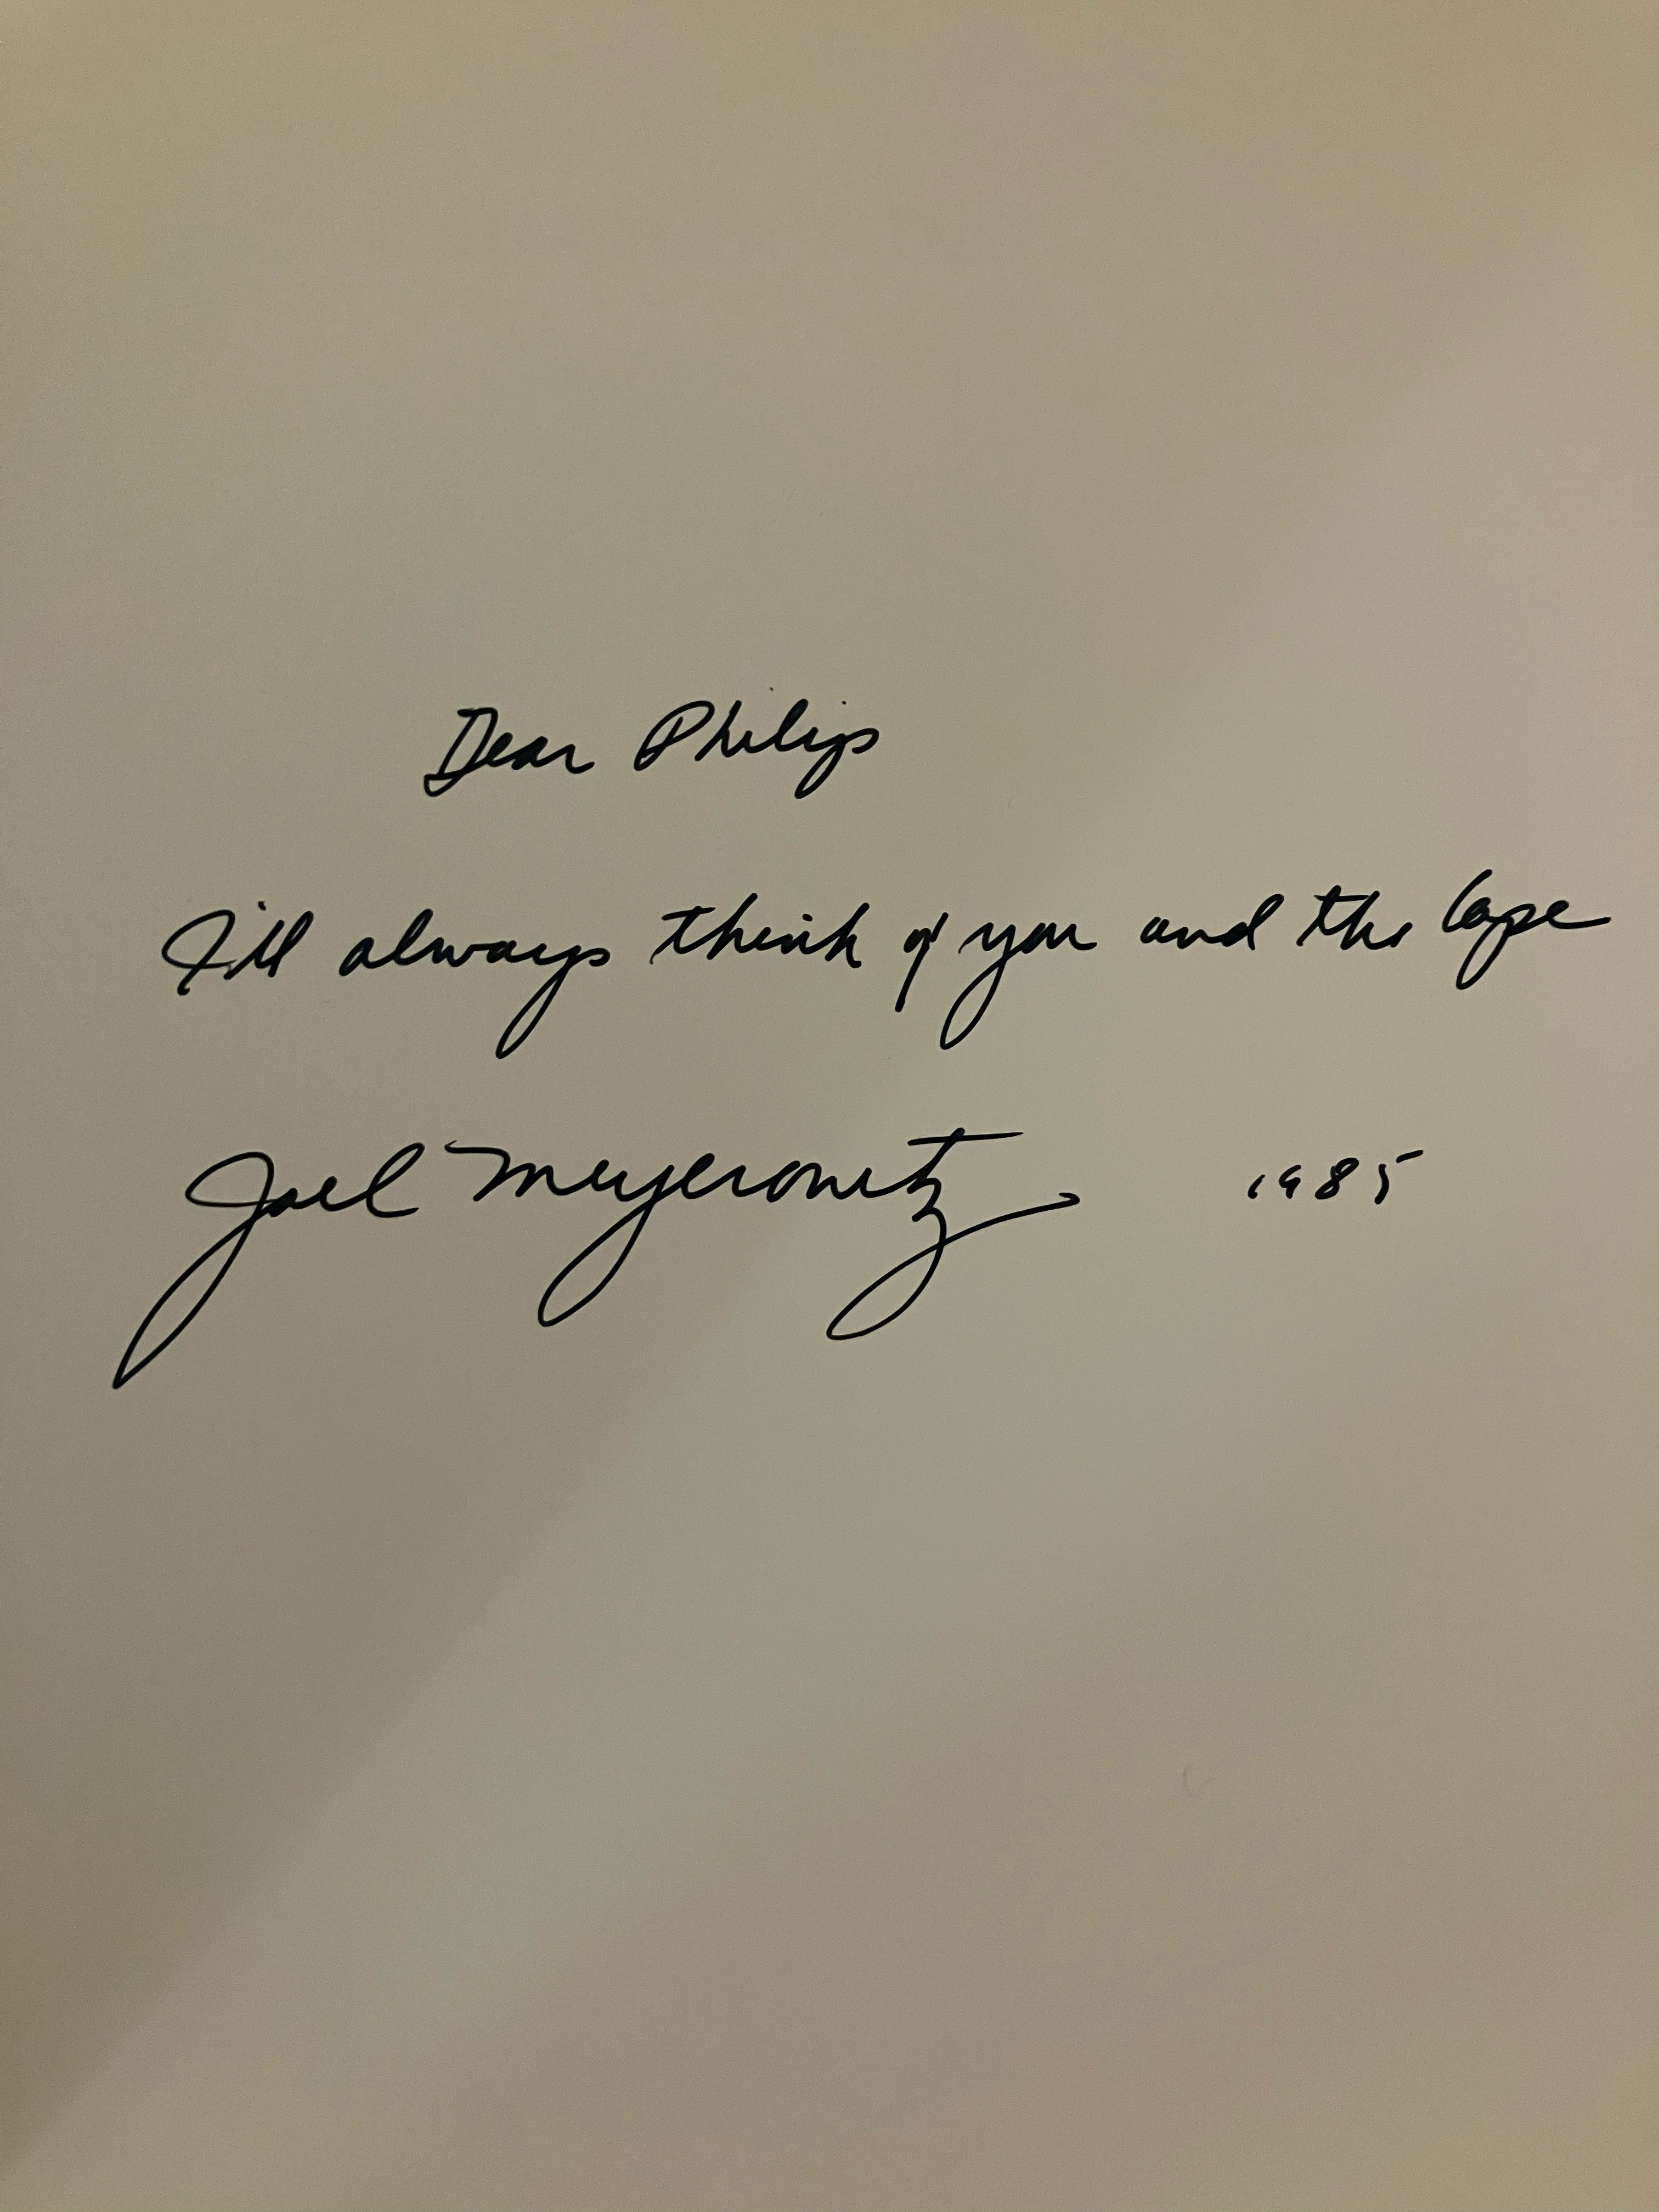 Dear Philip
I'll always think of you and the Cape
Joel Meyerowitz 1985